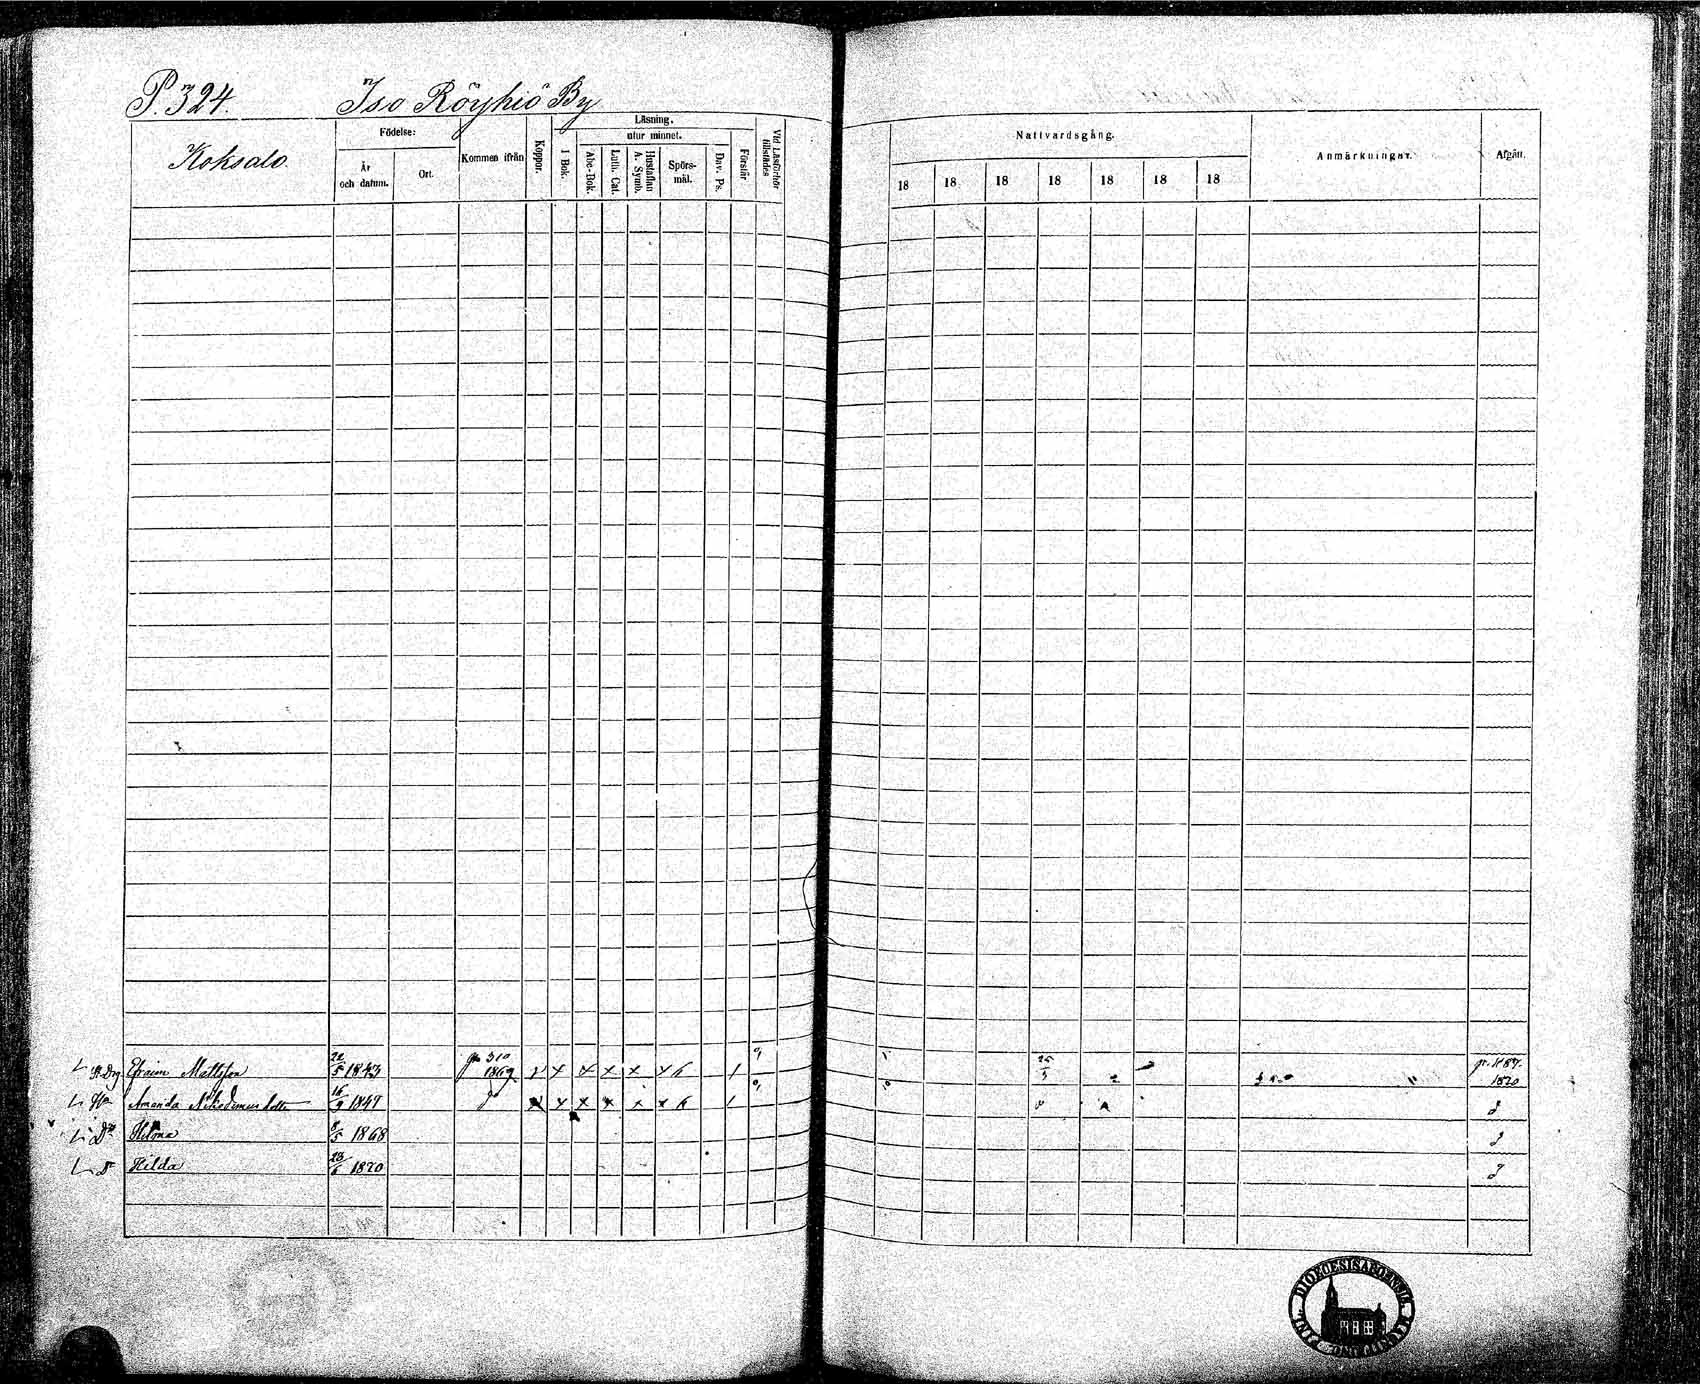 P. 324. Iso Röyhiö By
Koksalo.
Födelse:
År och datum.
Ort.
Kommen ifrån
Koppor.
Läsning.
I Bok.
utur minnet.
Abc-Bok.
Luth. Cat.
Hustaflan A. Symb.
Spörsmål.
Dav. Ps.
Förstår
Vid Läsförhör tillstädes
Nattvardsgång.
18 18 18 18 18 18 18
Anmärkningar.
Afgått.
Efraim Mattsson 22/5 1843 310 1869 x x x x x 1 1870
Amanda Nikodemus dotter 16/9 1847 x x x x x 1
Hilma 8/5 1868
Hilda 23/6 1870
DIOECESIS ABOENSIS